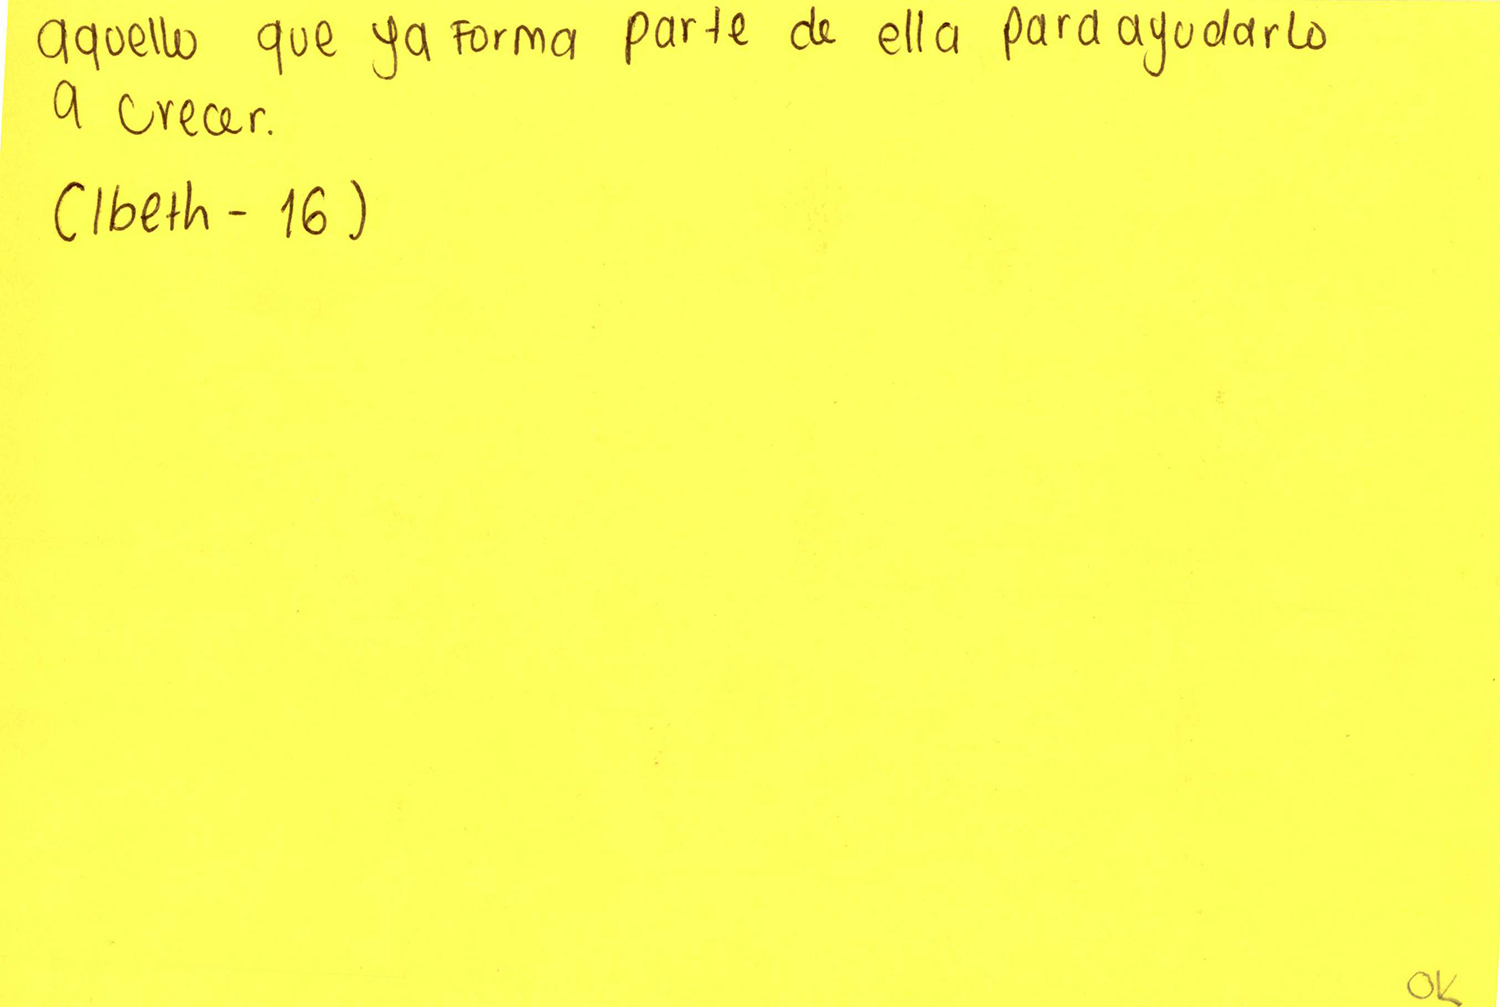 aquello que ya forma parte de ella para ayudarlo
a crecer.
(Ibeth - 16)
OK